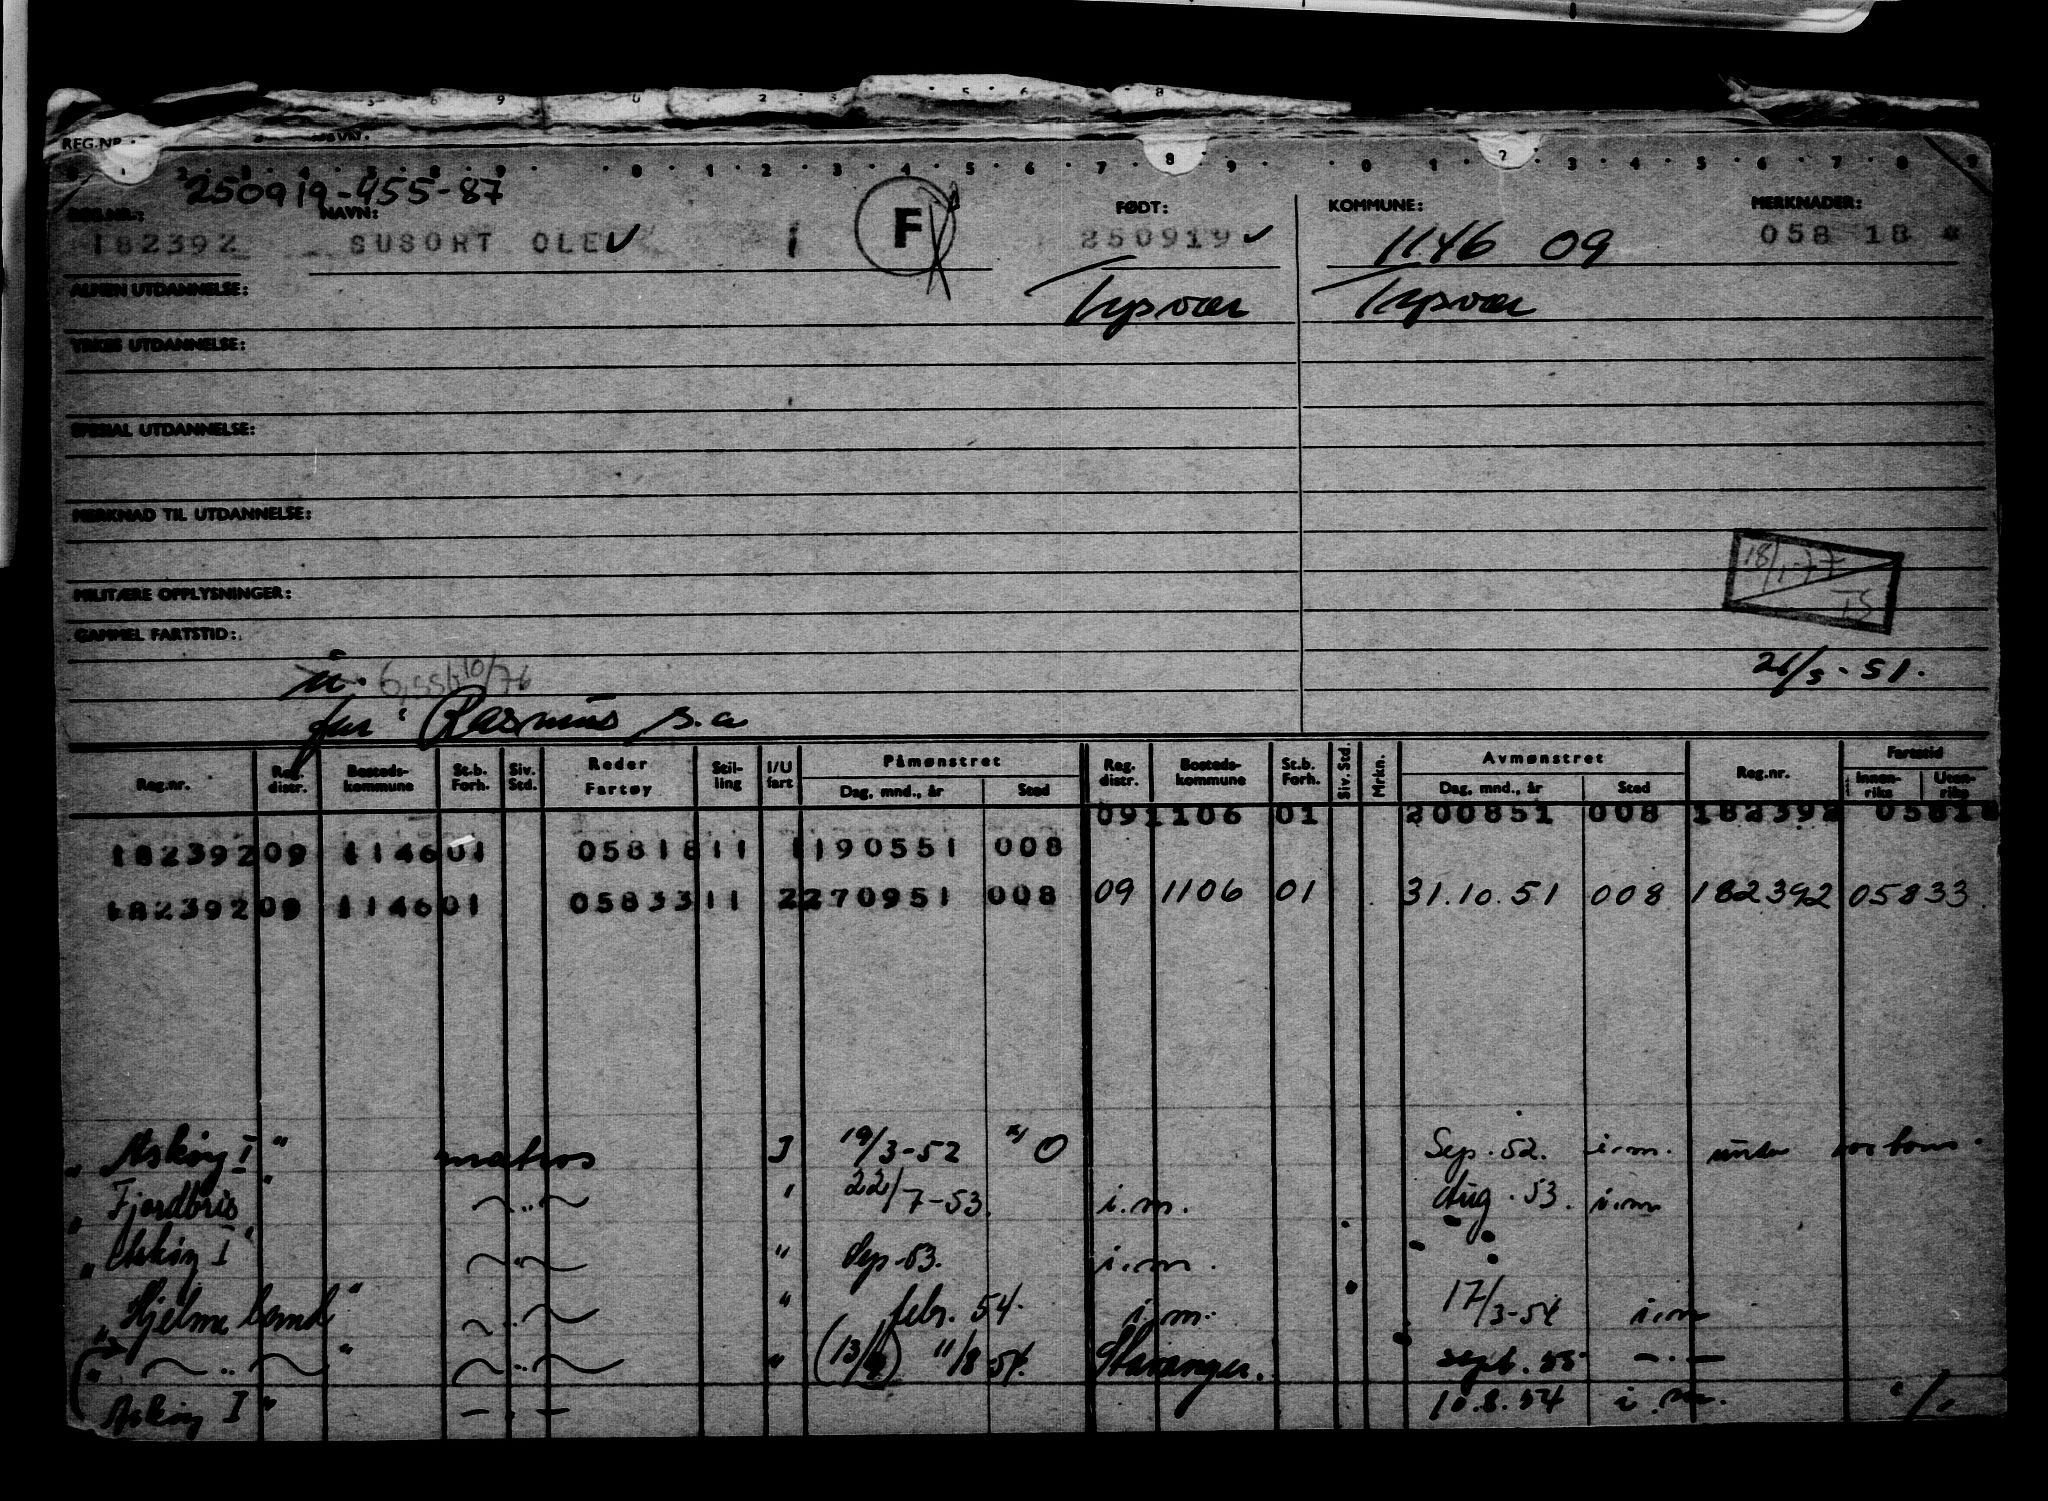 REG.NR.
250919-455-87
REG.NR.: NAVN: F FØDT: KOMMUNE: MERKNADER:
182392 SUSORT OLE 250919 1146 09 058 18
ALMEN UTDANNELSE: Tysvær Tysvær
YRKES UTDANNELSE:
SPESIAL UTDANNELSE:
MERKNAD TIL UTDANNELSE:
18/1-77
TS
MILITÆRE OPPLYSNINGER:
GAMMEL FARTSTID:
10/76 21/5-51.
far: Rasmus s.a
Reg.nr. Reg. distr. Bosteds-kommune St.b. Forh. Siv. Std. Reder Fartøy Stil-ling I/U fart Påmønstret Dag, mnd., år Sted Reg. distr. Bosteds-kommune St.b. Forh. Siv. Std. Mrkn. Avmønstret Dag, mnd., år Sted Reg.nr. Fartstid Innen-riks Uten-riks
091106 01 200851 008 182392 05818
182392 09 1146 01 05818 11 1 190551 008
182392 09 1146 01 05833 11 2 270951 008 09 1106 01 31.10.51 008 182392 05833
"Askøy I" matros I 19/3-52 x) O Sep. 52. i.m.
"Fjordbris" " 22/7-53. i.m. Aug. 53. i.m
"Askøy I" " Sep-53. i.m.
" " febr. 54. i.m. 17/3-54 i.m
" " " 11/8 54. Stavanger. sept. 55 -"-
Askøy I" -"- 10.8.54 i.m.